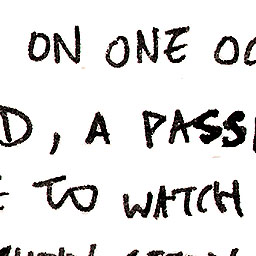 ON ONE OC
D, A PASS
E TO WATCH